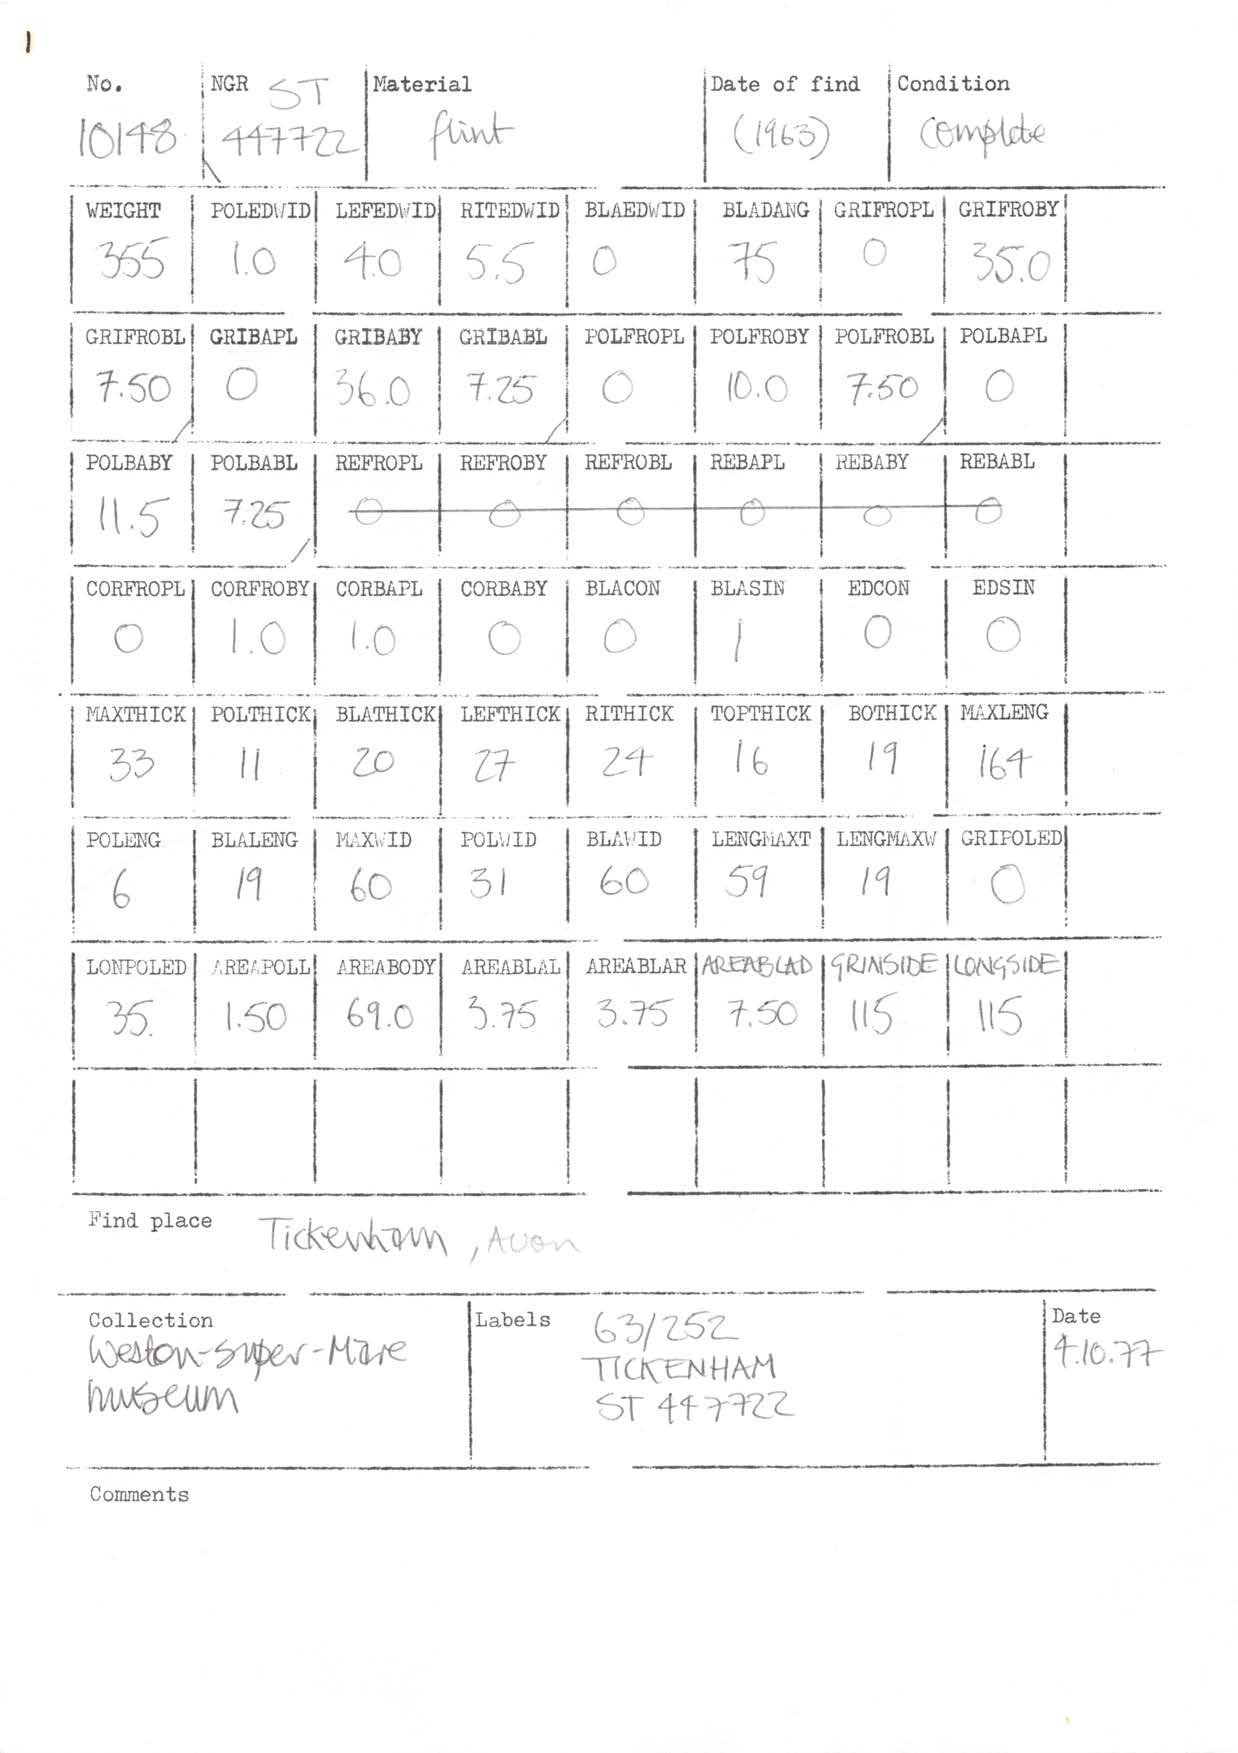 1
No. NGR ST Material Date of find Condition
10148 447722 flint (1963) complete
WEIGHT POLEDWID LEFEDWID RITEDWID BLAEDWID BLADANG GRIFROPL GRIFROBY
355 1.0 4.0 5.5 0 75 0 35.0
GRIFROBL GRIBAPL GRIBABY GRIBABL POLFROPL POLFROBY POLFROBL POLBAPL
7.50 0 36.0 7.25 0 10.0 7.50 0
POLBABY POLBABL REFROPL REFROBY REFROBL REBAPL REBABY REBABL
11.5 7.25 0 0 0 0 0 0
CORFROPL CORFROBY CORBAPL CORBABY BLACON BLASIN EDCON EDSIN
0 1.0 1.0 0 0 1 0 0
MAXTHICK POLTHICK BLATHICK LEFTHICK RITHICK TOPTHICK BOTHICK MAXLENG
33 11 20 27 24 16 19 164
POLENG BLALENG MAXWID POLWID BLAWID LENGMAXT LENGMAXW GRIPOLED
6 19 60 31 60 59 19 0
LONPOLED AREAPOLL AREABODY AREABLAL AREABLAR AREABLAD GRINSIDE LONGSIDE
35. 1.50 69.0 3.75 3.75 7.50 115 115
Find place Tickenham, Avon
Collection Labels 63/252 Date
Weston-super-Mare TICKENHAM 4.10.77
museum ST 447722
Comments